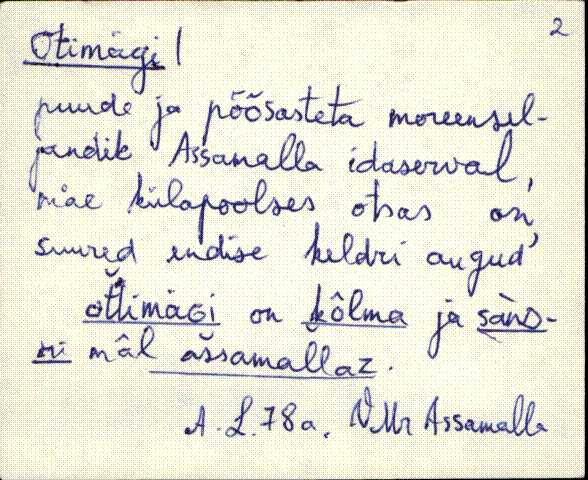 2
Otimägi |
puude ja põõsasteta moreensel-
jandik Assamalla idaserval,
mäe külapoolses otsas on
suured endise keldri augud
oťtimäGi on kôlma ja sàns-
mâl aššamallaz.
A. L. 78 a. VMr Assamalla